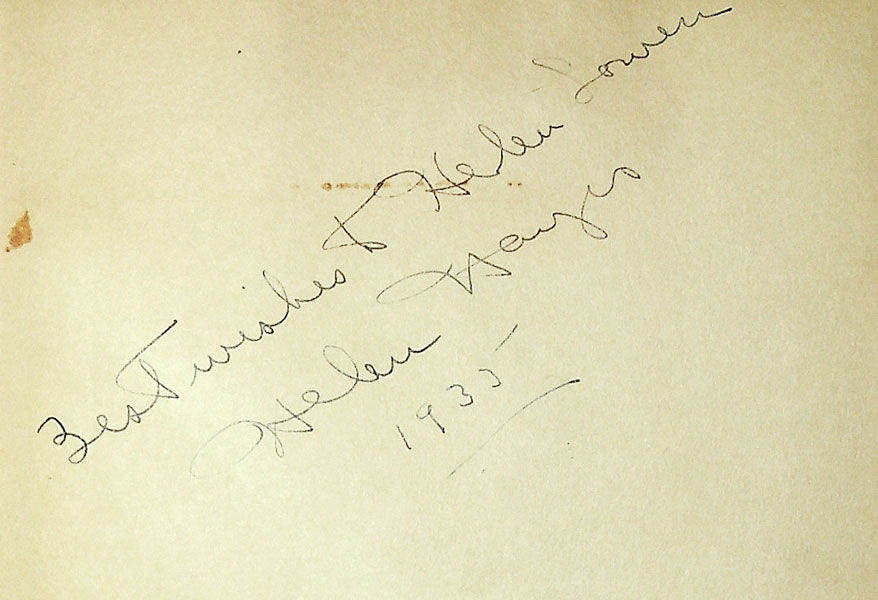 Best wishes to Helen
Helen Hayes
1935